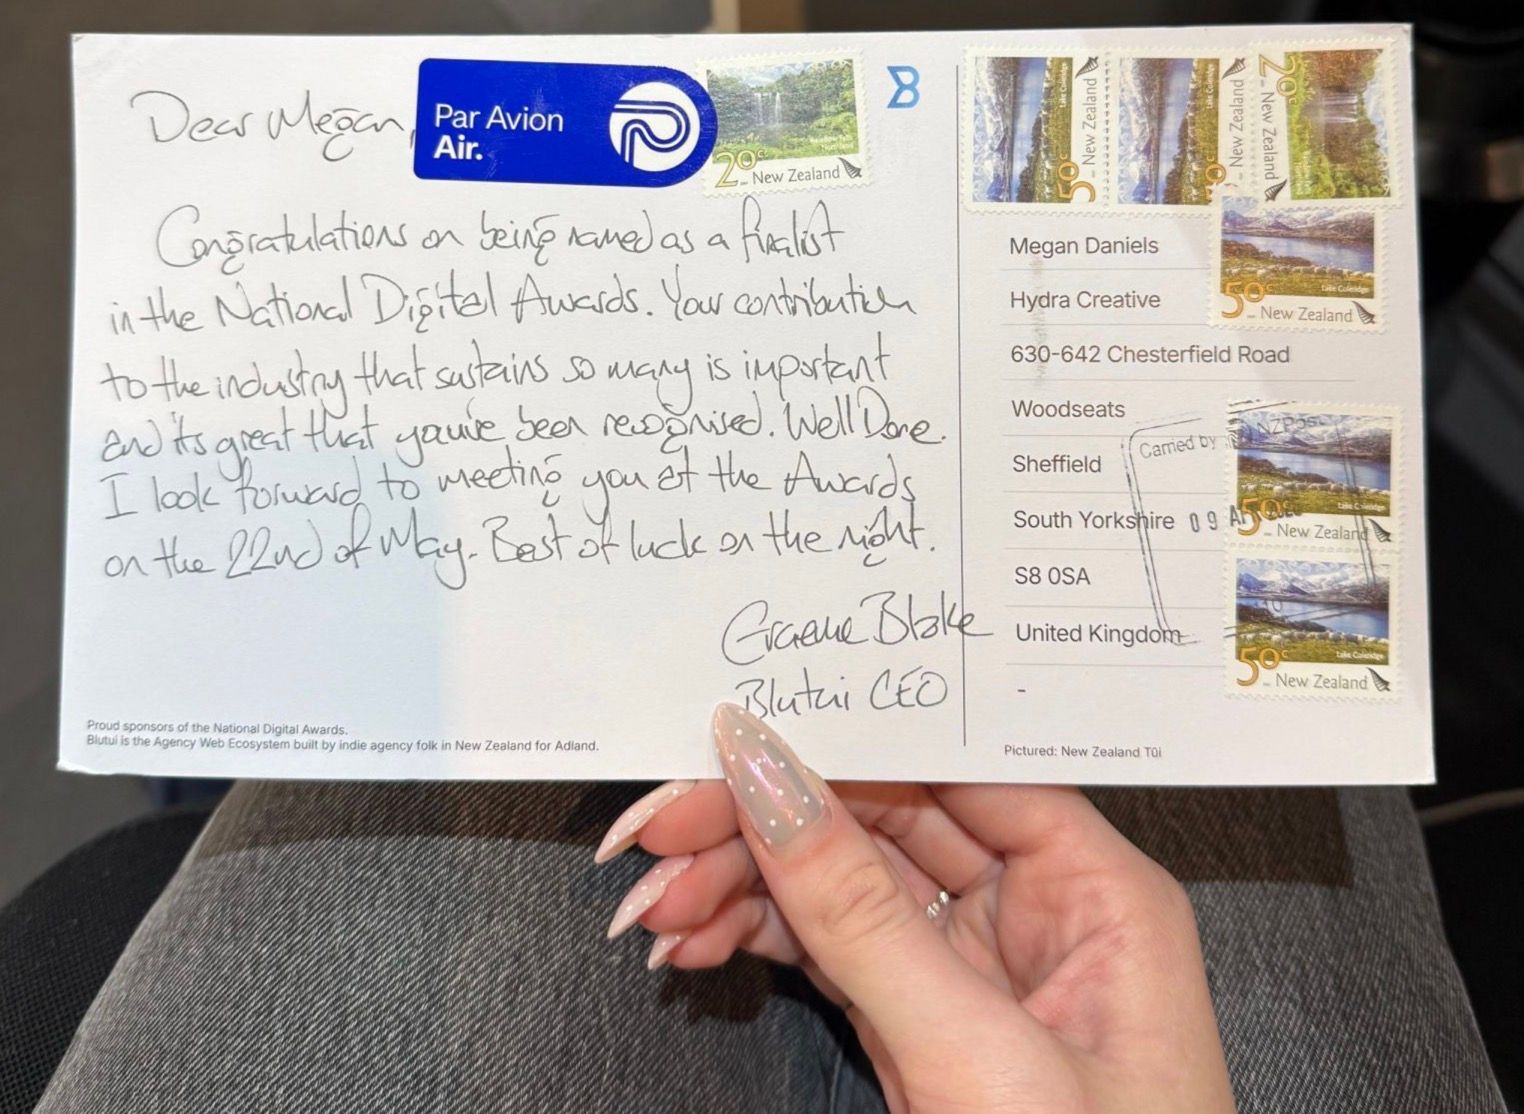 Dear Megan,
Par Avion
Air.
20c New Zealand
Congratulations on being named as a finalist
in the National Digital Awards. Your contribution
to the industry that sustains so many is important
and it's great that you've been recognised. Well Done.
I look forward to meeting you at the Awards
on the 22nd of May. Best of luck on the night.
Graeme Blake
Blutui CEO
Proud sponsors of the National Digital Awards.
Blutui is the Agency Web Ecosystem built by indie agency folk in New Zealand for Adland.
B
Lake Coleridge
50c New Zealand
Lake Coleridge
50c New Zealand
20c New Zealand
Lake Coleridge
50c New Zealand
Megan Daniels
Hydra Creative
630-642 Chesterfield Road
Woodseats
Sheffield
South Yorkshire
S8 0SA
United Kingdom
-
Carried by
NZPost
09
Lake Coleridge
50c New Zealand
Lake Coleridge
50c New Zealand
Pictured: New Zealand Tūī